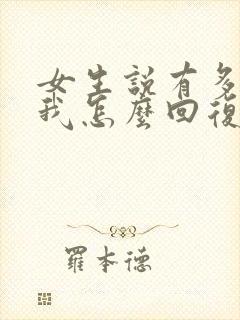 女生説有多
我怎麼回復
羅本德